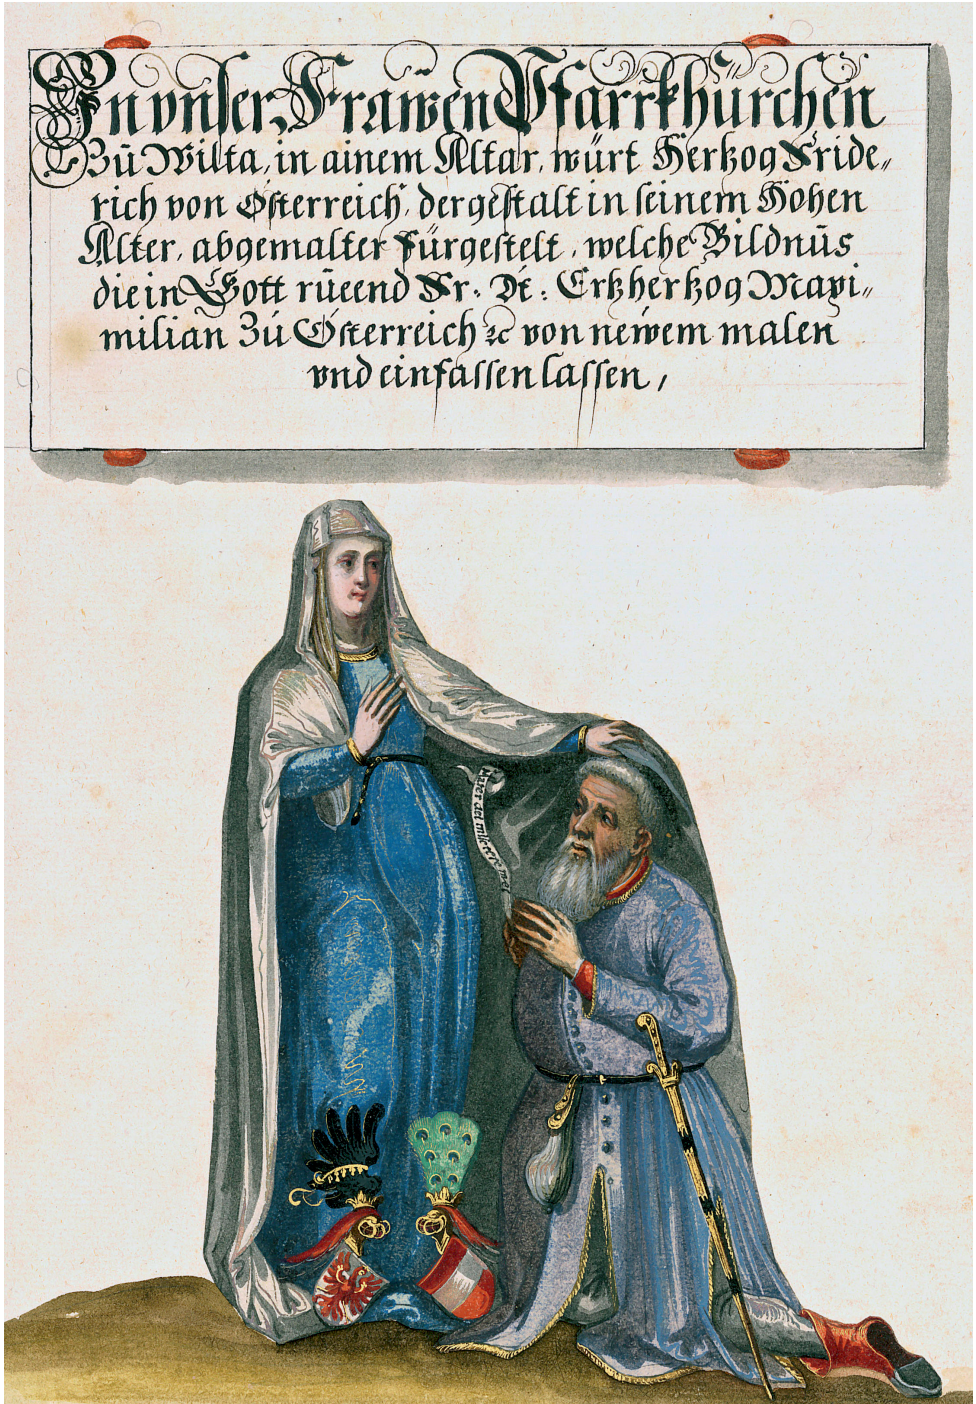 In vnser Frawen Pfarrkhürchen
Zū Wilta, in ainem Altar, würt Hertzog Fride„
rich von Osterreich, dergestalt in seinem Hohen
Alter, abgemalter fürgestelt, welche Bildnūs
die in Gott rūeend Fr: Dt: Ertzhertzog Maxi„
milian Zú Ósterreich ꝛc von neẃem malen
vnd einfassen lassen,
Mater dei